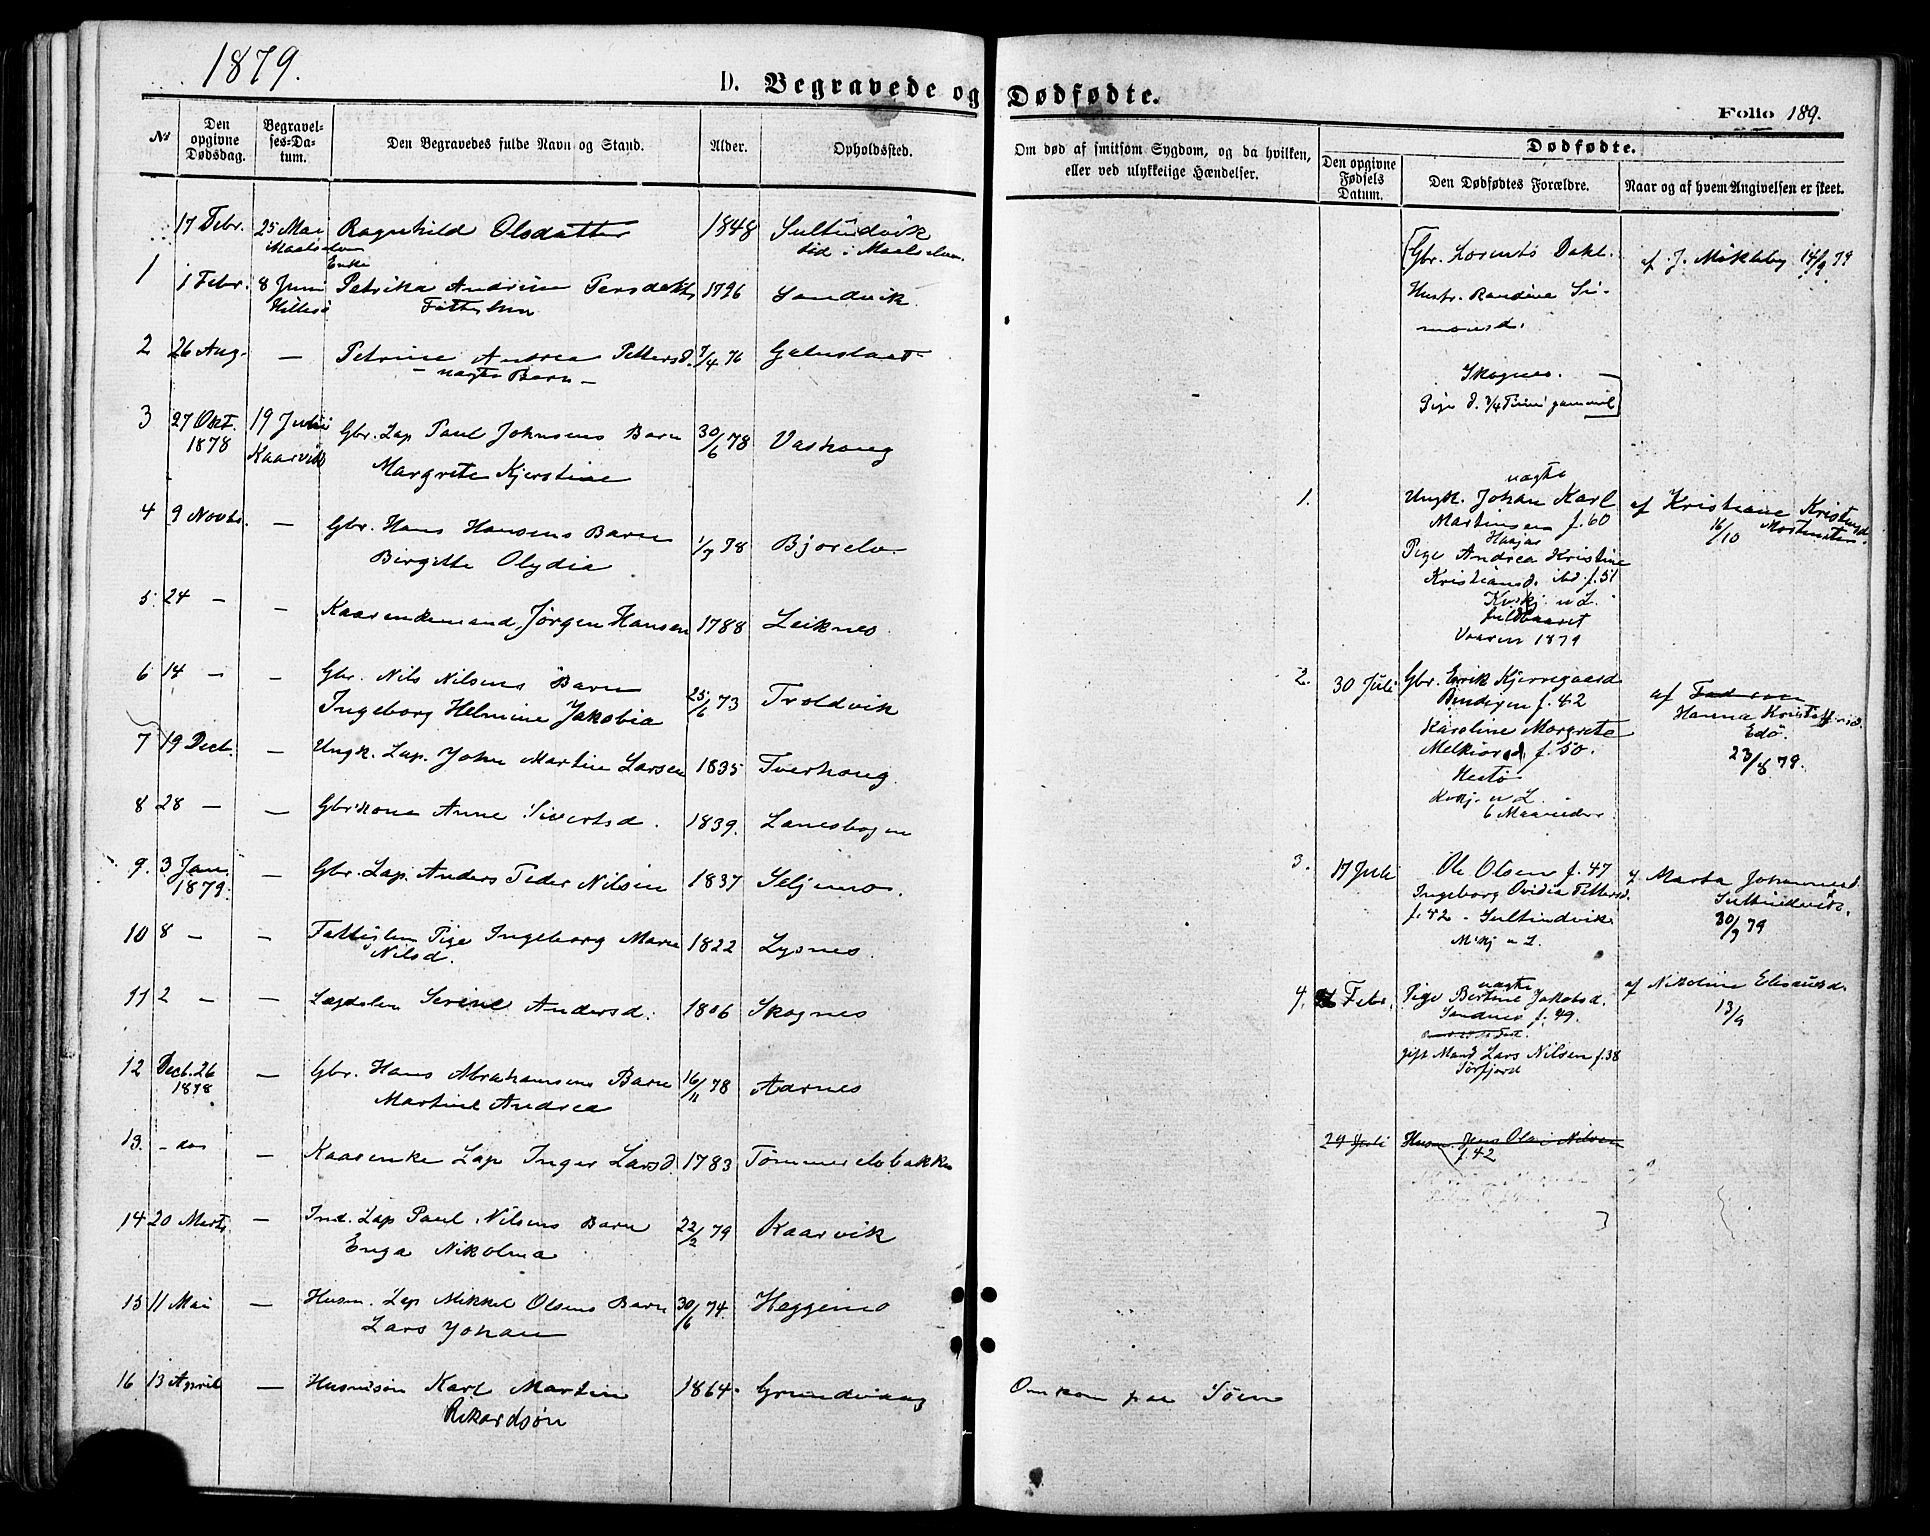 1879.
D. Begravede og Dødfødte.
Folio 189.
No
Den opgivne Dødsdag.
Begravelses-Datum.
Den Begravedes fulde Navn og Stand.
Alder.
Opholdssted.
Om død af smitsom Sygdom, og da hvilken, eller ved ulykkelige Hændelser.
Dødfødte.
Den opgivne Fødsels Datum.
Den Dødfødtes Forældre.
Naar og af hvem Angivelsen er skeet.
17 Febr. 25 Mai Ragnhild Olsdatter 1848 Sultindvik
Maalselven tid. i Maalselven
1 1 Febr. 8 Juni Enke Petrika Andrine Persdatter 1796 Sandvik.
Hillesö
2 26 Aug. — Petrine Andrea Pettersd. 7/4 76
— uægte Barn —
3 27 Okt. 1878 19 Juli Gbr. Lap Paul Johnsens Barn 30/6 78 Vashaug
Kaarvik Margrete Kjerstine
4 9 Novbr. — Gbr. Hans Hansens Barn 1/7 78 Bjorelv
Birgitte Olydia
5. 24 — — Kaarenkemand Jørgen Hansen 1788 Leiknes
6 14 — — Gbr. Nils Nilsens Barn 25/6 73 Troldvik
Ingeborg Helmine Jakobia
7 19 Decb. — Ungk. Lap. John Martin Larsen 1835 Tverhaug.
8 28 — — Gbrkone Anne Sivertsd. 1839. Lanesbogen
9. 3 Jan. 1879. — Gbr. Lap. Anders Peder Nilsen 1837 Seljemo.
10 8 — — Fattiglem Pige Ingeborg Marie 1822 Lysnes.
Nilsd.
11 2 — — Lægdslem Serine Andersd. 1806 Skognes
12 Decb. 26 1878 — Gbr. Hans Abrahamsens Barn 16/11 78 Aarnes
Martine Andrea
13. — dos — Kaarenke Lap Inger Larsd. 1783 Tømmerelvbakken
14 20 Marts — Ind. Lap Paul Nilsens Barn 22/2 79 Kaarvik
Enga Nikolina
15 11 Mai — Husm. Lap Mikkel Olsens Barn 30/6 74. Heggemo
Lars Johan
16 13 April — Husmsøn Karl Martin 1864. Grundvaag Omkom paa Søen
Rikardsøn
Gbr. Lorents Dahl. af J. Mökleby 14/9 79
Hustr. Randine Simonsd.
Skognes. —
Pige d. 3/4 Time gammel
1. uægte
Ungk. Johan Karl af Kristiane Kristensd.
Martinsen f. 60 16/10
Haajas
Pige Andrea Kristine
Kristiansd. ibd. f. 51
Kvkj. u L.
fuldbaaret
Vaaren 1879
2. 30 Juli Gbr. Erik Kjerregaard
Bendixen f. 42 af Hanna Kristoffersd.
Karoline Margrete Edö.
Melkiorsd. f. 50. 23/8 79.
Hestö
Kvkj. u L.
6 Maaneder
3. 17 Juli Ole Olsen f. 47 af Marta Johannesd.
Ingeborg Ovidia Pettersd. Sultindvik.
f. 42 - Sultindvik 30/9 79
M.kj u L.
4. Febr. uægte
Pige Bertine Jakobsd. af Nikoline Eliseusd.
Sandnes f. 49. 13/9
gift Mand Lars Nilsen f. 38
Sørfjord
24 Juli Husm. Jens Olai Nilsen
f. 42